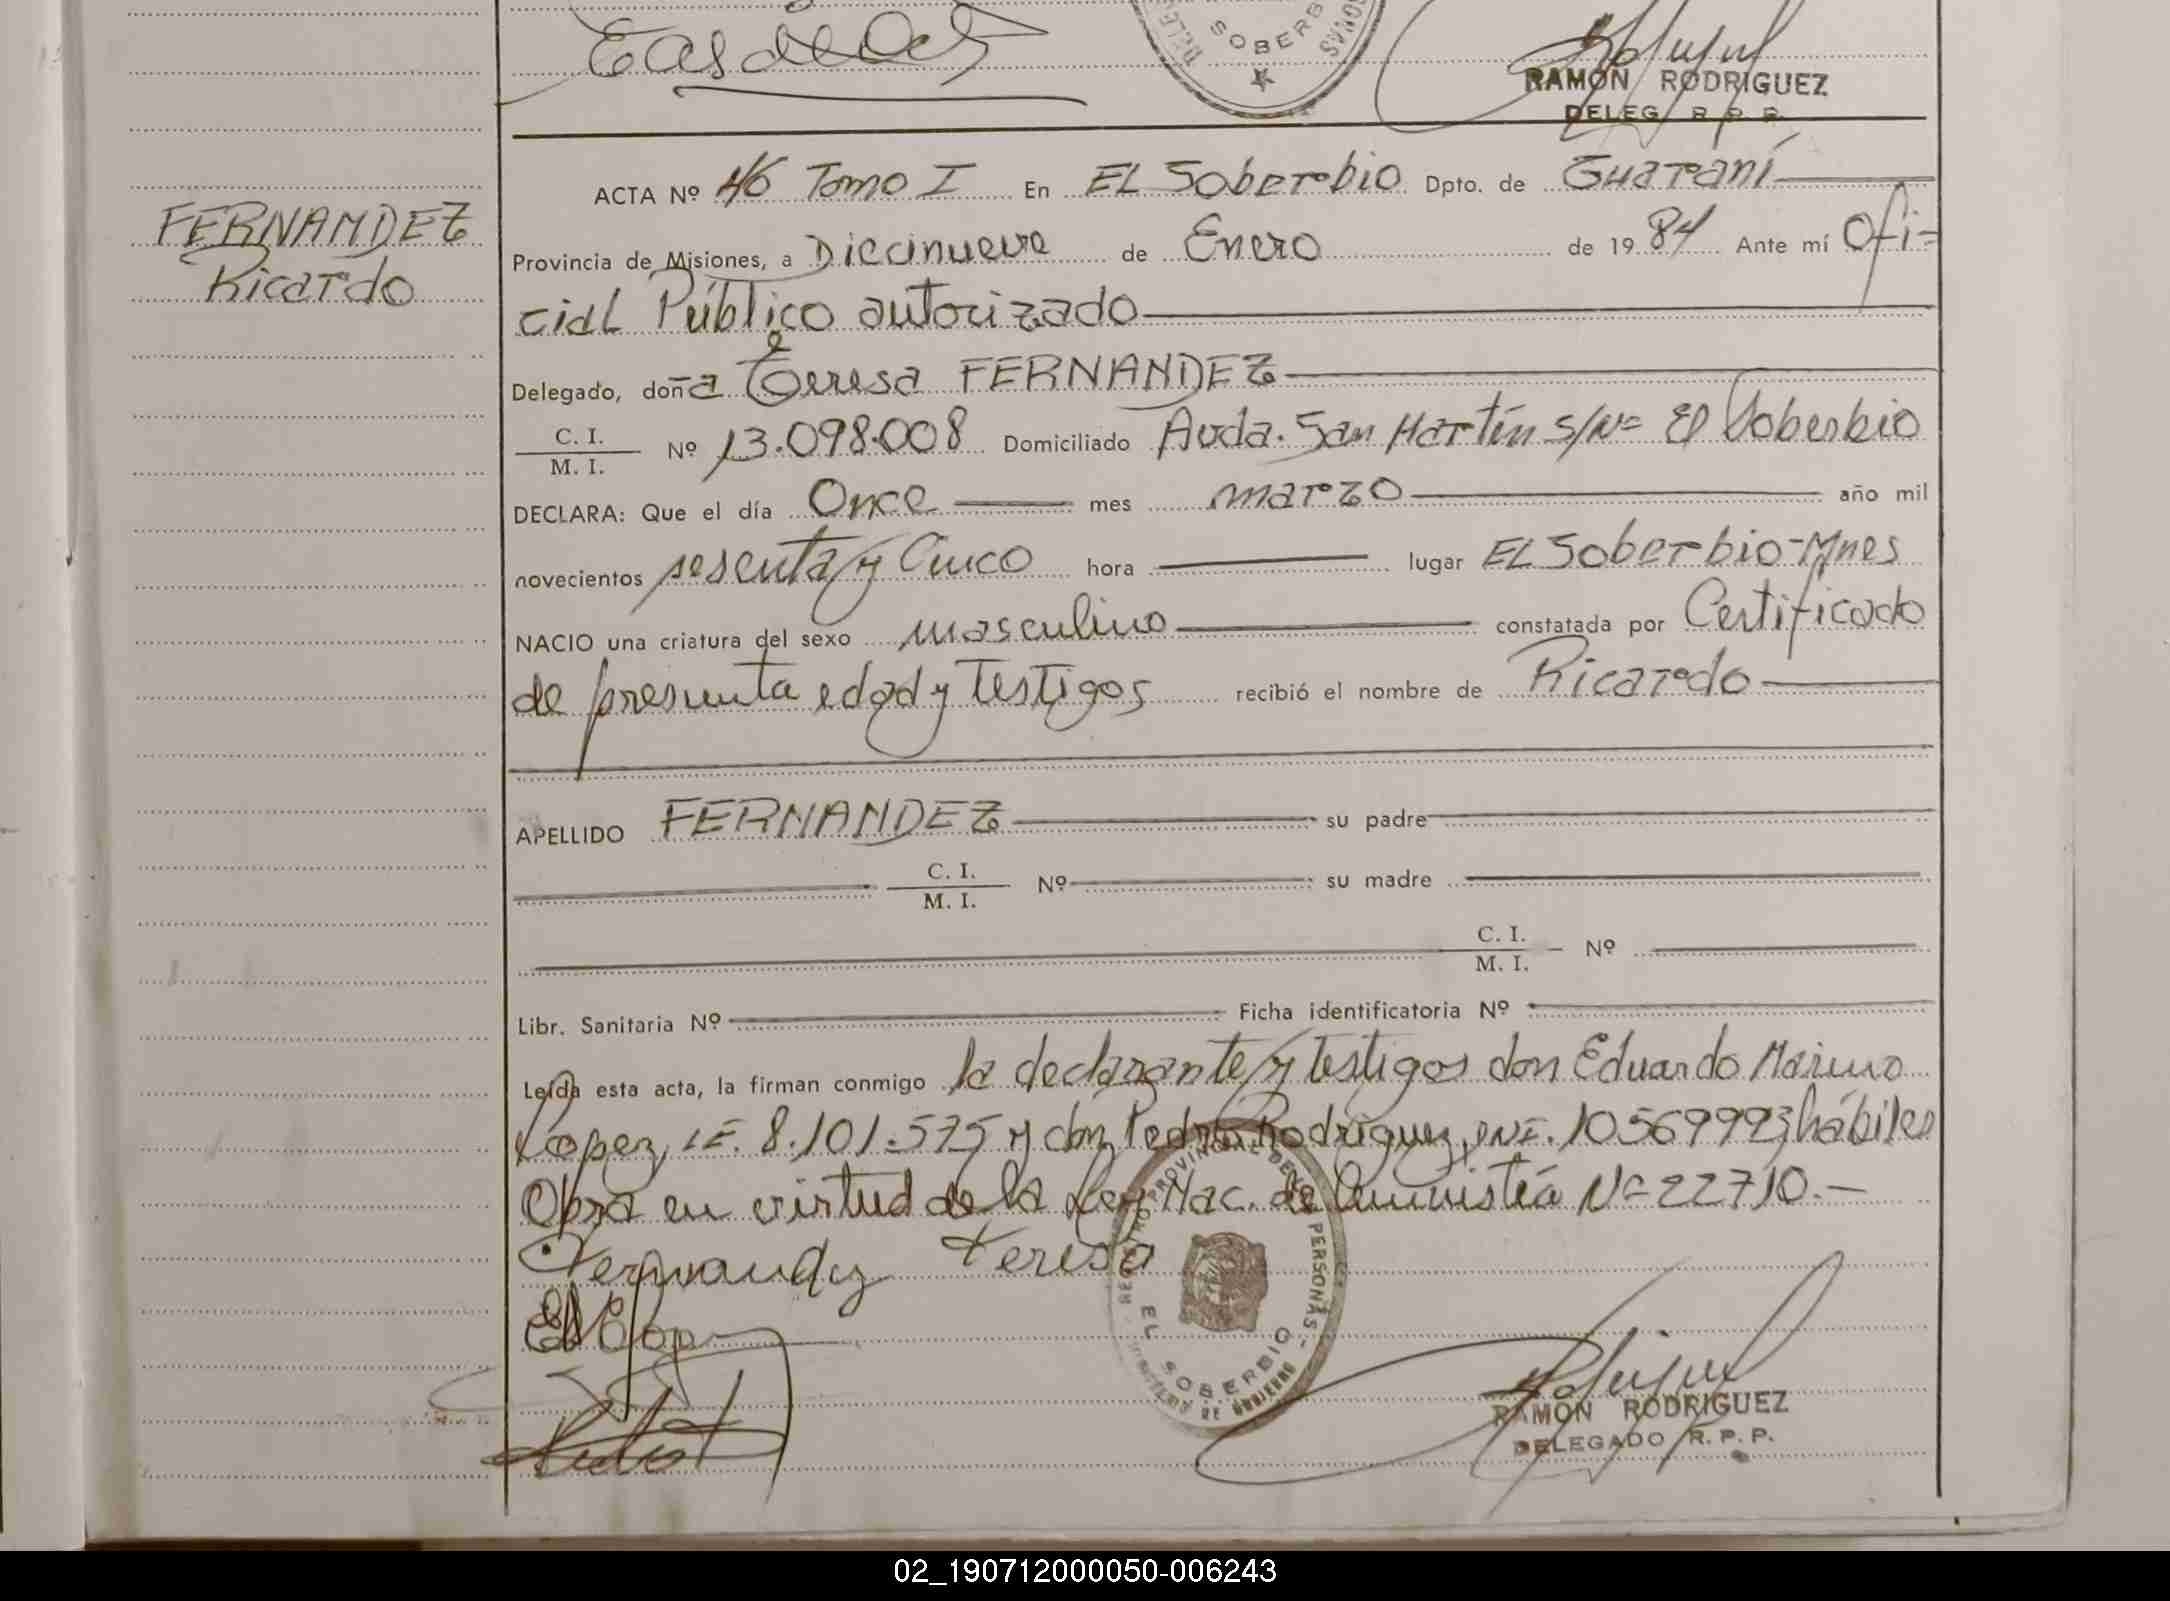 SOBERB
RAMON RODRIGUEZ
DELEG R. P. P.
FERNANDEZ
Ricardo
ACTA Nº 46 Tomo I En EL Soberbio Dpto. de Guaraní
Provincia de Misiones, a Diecinueve de Enero de 1984 Ante mí Ofi-
cial Público autorizado
Delegado, doña Teresa FERNANDEZ
C. I. / M. I. Nº 13.098.008 Domiciliado Avda. San Martín s/Nº El Soberbio
DECLARA: Que el día Once mes marzo año mil
novecientos sesenta y Cinco hora lugar EL Soberbio-Mnes
NACIO una criatura del sexo masculino constatada por Certificado
de presunta edad y Testigos recibió el nombre de Ricardo
APELLIDO FERNANDEZ su padre
C. I. / M. I. Nº su madre
C. I. / M. I. Nº
Libr. Sanitaria Nº Ficha identificatoria Nº
Leída esta acta, la firman conmigo la declarante y Testigos don Eduardo Marino
Lopez, LE. 8.101.575 y don Pedro Rodriguez, DNI. 10569993 hábiles
Obra en virtud de la Ley Nac. de Amnistía Nº 22710.-
Fernandez Teresa
REGISTRO PROVINCIAL DE LAS PERSONAS - MINISTERIO DE GOBIERNO
EL SOBERBIO
RAMON RODRIGUEZ
DELEGADO R. P. P.
02_190712000050-006243